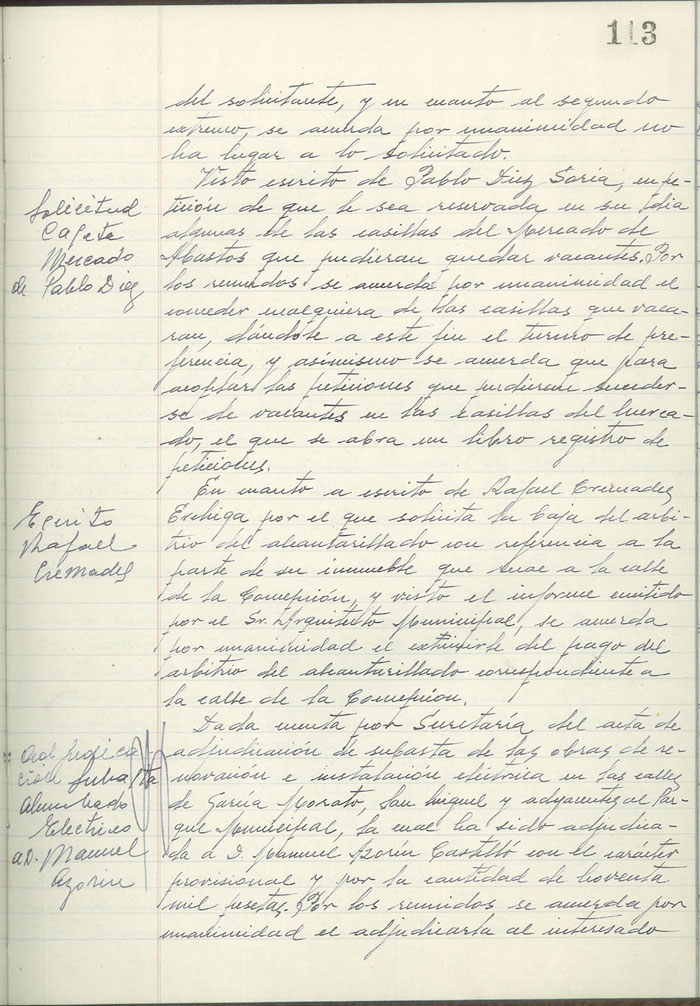 113
del solicitante, y en cuanto al segundo
extremo, se acuerda por unanimidad no
ha lugar a lo solicitado.
Solicitud
Caseta
Mercado
de Pablo Diez
Visto escrito de Pablo Diez Soria, en pe-
tición de que le sea reservada en su dia
algunas de las casillas del Mercado de
Abastos que pudieran quedar vacantes. Por
los reunidos se acuerda por unanimidad el
conceder cualquiera de las casillas que vaca-
ran, dándole a este fin el turno de pre-
ferencia, y asimismo se acuerda que para
acoplar las peticiones que pudieran suceder-
se de vacantes en las casillas del Merca-
do, el que se abra un libro registro de
peticiones.
Escrito
Rafael
Cremades
En cuanto a escrito de Rafael Cremades
por el que solicita la baja del arbi-
trio del alcantarillado con referencia a la
parte de su inmueble que recae a la calle
de la Concepción, y visto el informe emitido
por el Sr. Arquitecto Municipal, se acuerda
por unanimidad el eximirle del pago del
arbitrio del alcantarillado correspondiente a
la calle de la Concepción.
Adjudica
ción Subasta
Alumbrado
Electrico
a D. Manuel
Azorin
Dada cuenta por Secretaría del acta de
adjudicación de subasta de las obras de re-
novación e instalación eléctrica en las calles
de García Morato, San Miguel y adyacentes al Par-
que Municipal, la cual ha sido adjudica-
da a D. Manuel Azorín Castelló con el carácter
provisional y por la cantidad de noventa
mil pesetas. Por los reunidos se acuerda por
unanimidad el adjudicarla al interesado